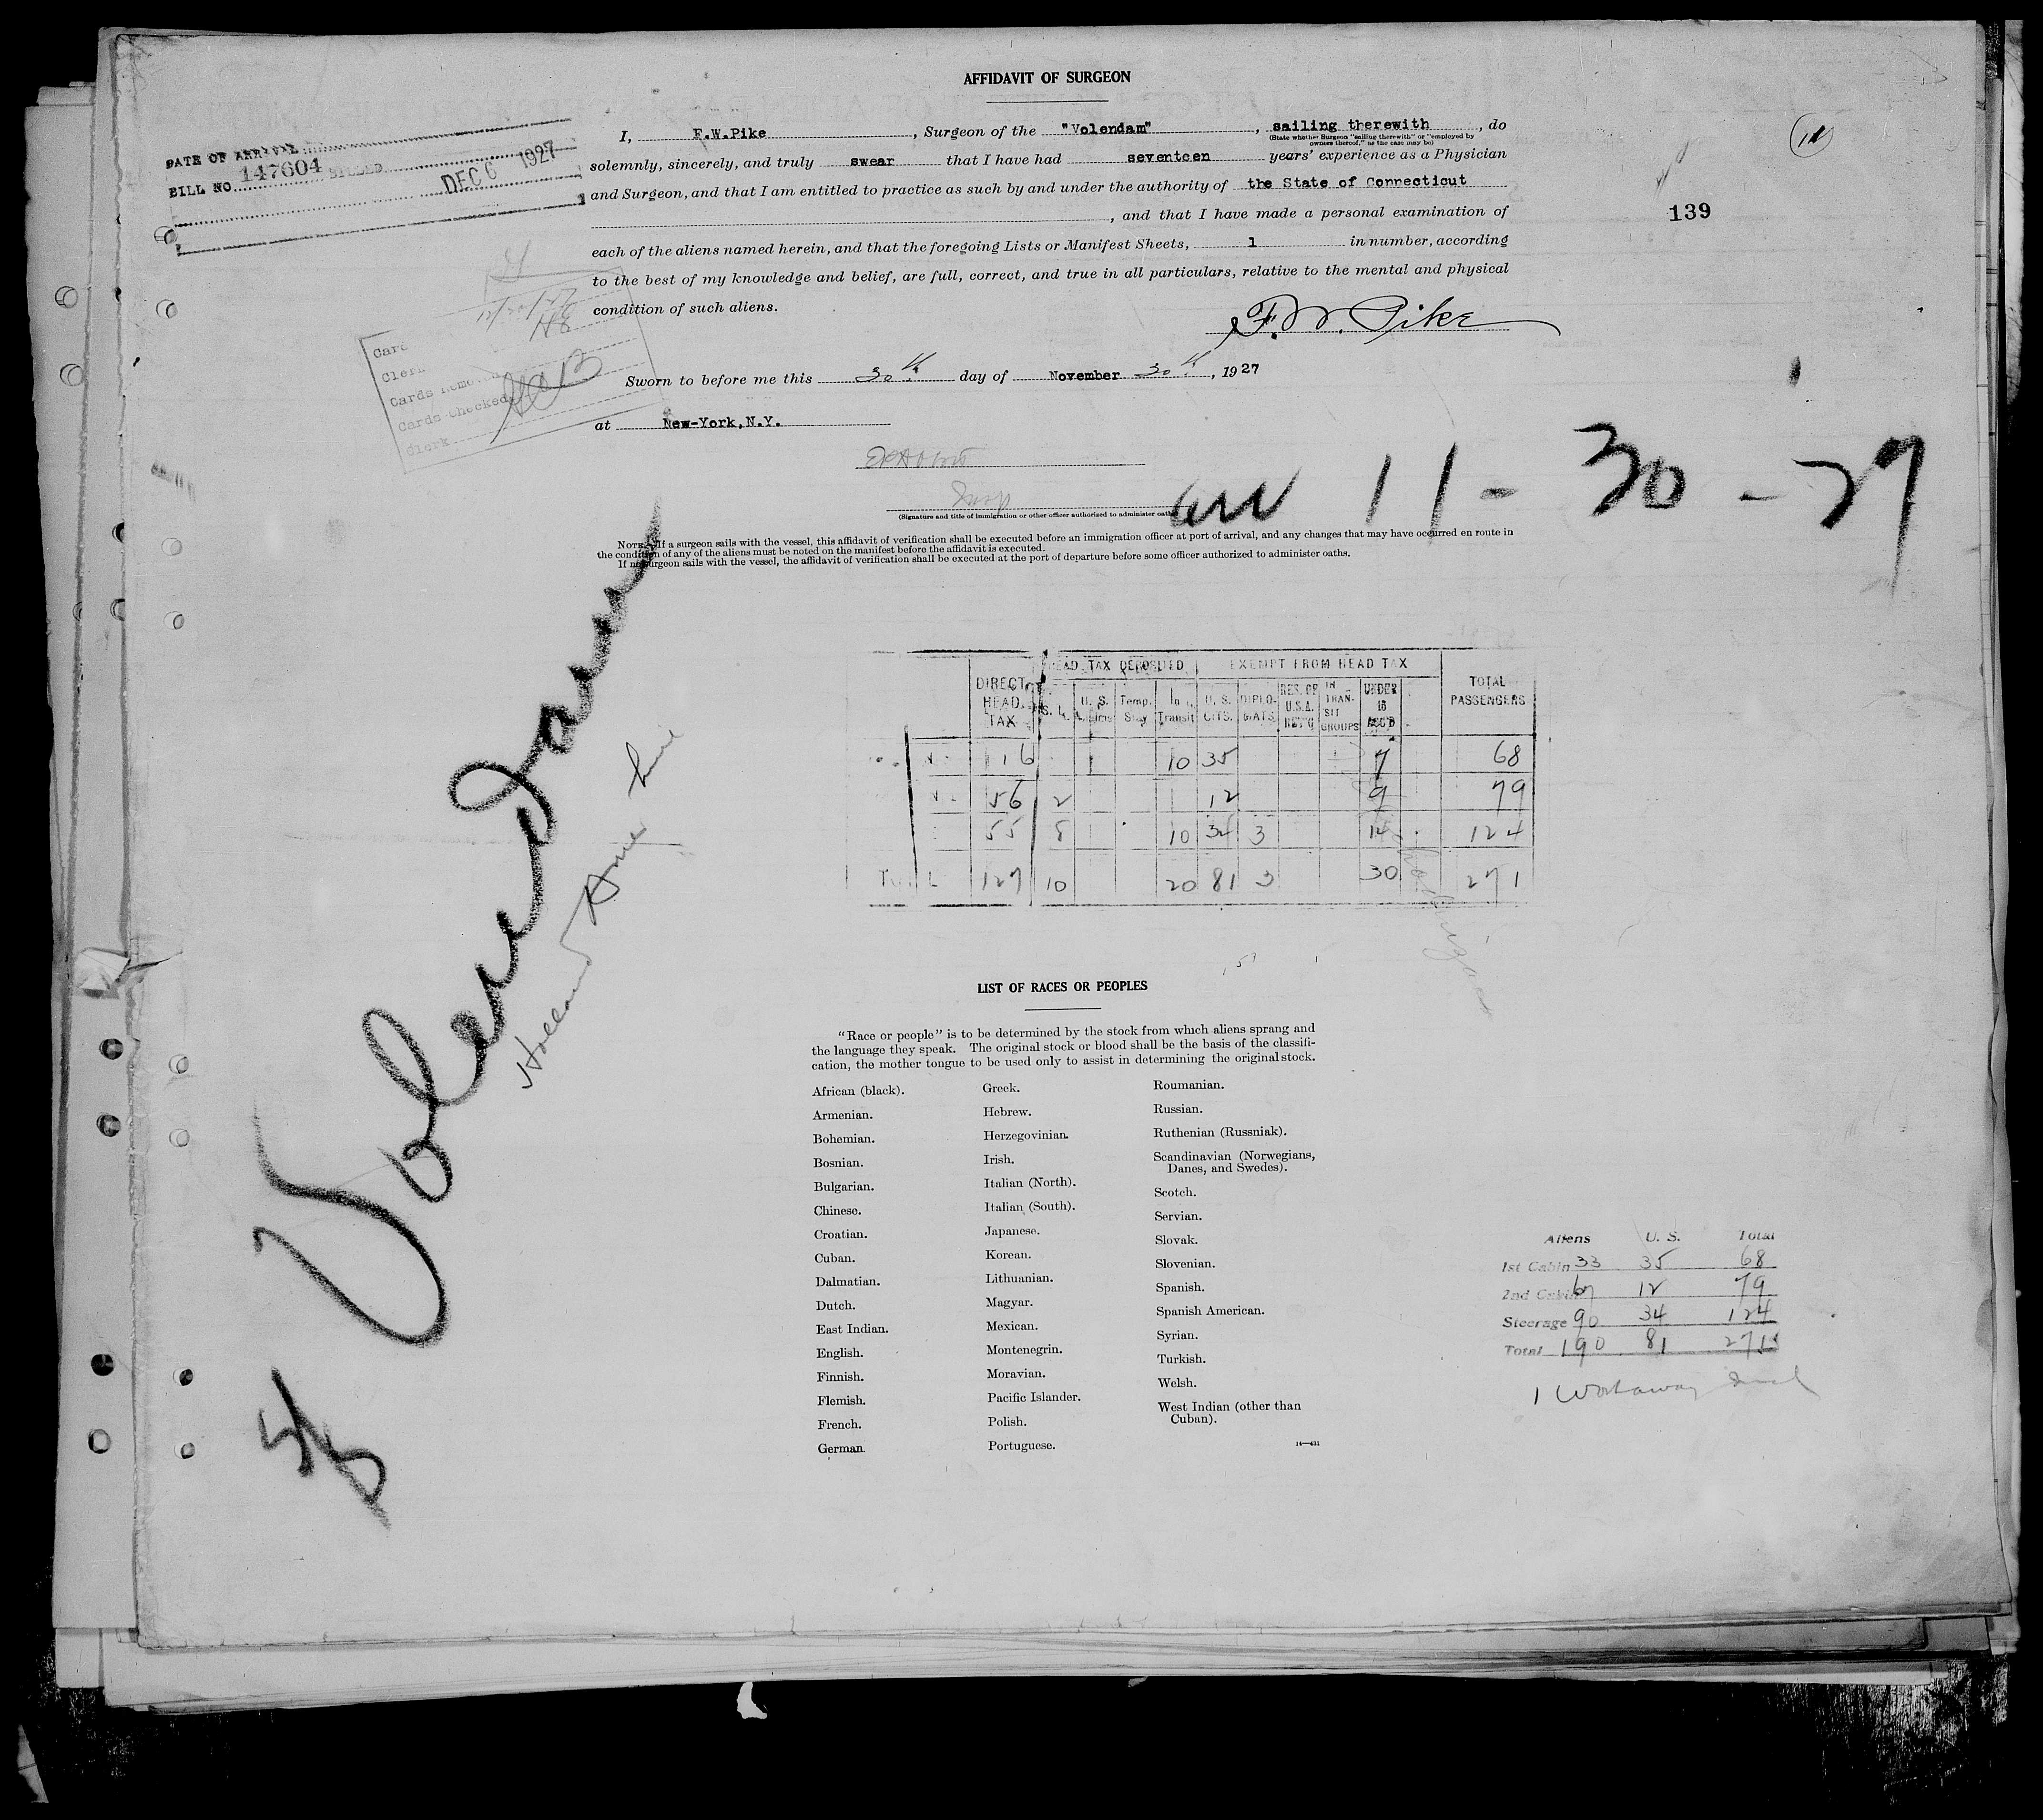 AFFIDAVIT OF SURGEON
DATE OF ARRIVAL
BILL NO. 147604 BILLED DEC 6 1927
I, F.W.Pike, Surgeon of the "Volendam", sailing therewith, do
(State whether Surgeon "sailing therewith" or "employed by
owners thereof," as the case may be)
solemnly, sincerely, and truly swear that I have had seventeen years' experience as a Physician
and Surgeon, and that I am entitled to practice as such by and under the authority of the State of Connecticut
, and that I have made a personal examination of
139
each of the aliens named herein, and that the foregoing Lists or Manifest Sheets, 1 in number, according
to the best of my knowledge and belief, are full, correct, and true in all particulars, relative to the mental and physical
condition of such aliens.
F. W. Pike
Clerk
Cards Removed
Cards Checked
Clerk
Sworn to before me this 30th day of November 30th, 1927
at New-York, N.Y.
Insp
(Signature and title of immigration or other officer authorized to administer oaths)
arr 11-30-27
NOTE.—If a surgeon sails with the vessel, this affidavit of verification shall be executed before an immigration officer at port of arrival, and any changes that may have occurred en route in
the condition of any of the aliens must be noted on the manifest before the affidavit is executed.
If no surgeon sails with the vessel, the affidavit of verification shall be executed at the port of departure before some officer authorized to administer oaths.
Volendam
Holland Amer Line
HEAD TAX DEPOSITED EXEMPT FROM HEAD TAX
DIRECT HEAD TAX S. I. U. S. Temp. Stay In Transit U. S. CITS. DIPLOMATS RES. OF U.S.A. RET'G IN TRANSIT GROUPS UNDER 16 ACC'D TOTAL PASSENGERS
16 10 35 7 68
56 2 12 9 79
55 8 10 34 3 14 124
TOTAL 127 10 20 81 3 30 271
LIST OF RACES OR PEOPLES
"Race or people" is to be determined by the stock from which aliens sprang and
the language they speak. The original stock or blood shall be the basis of the classifi-
cation, the mother tongue to be used only to assist in determining the original stock.
African (black).
Armenian.
Bohemian.
Bosnian.
Bulgarian.
Chinese.
Croatian.
Cuban.
Dalmatian.
Dutch.
East Indian.
English.
Finnish.
Flemish.
French.
German
Greek.
Hebrew.
Herzegovinian.
Irish.
Italian (North).
Italian (South).
Japanese.
Korean.
Lithuanian.
Magyar.
Mexican.
Montenegrin.
Moravian.
Pacific Islander.
Polish.
Portuguese.
Roumanian.
Russian.
Ruthenian (Russniak).
Scandinavian (Norwegians,
Danes, and Swedes).
Scotch.
Servian.
Slovak.
Slovenian.
Spanish.
Spanish American.
Syrian.
Turkish.
Welsh.
West Indian (other than
Cuban).
14—431
Aliens U. S. Total
1st Cabin 33 35 68
2nd Cabin 67 12 79
Steerage 90 34 124
Total 190 81 271
1 Workaway